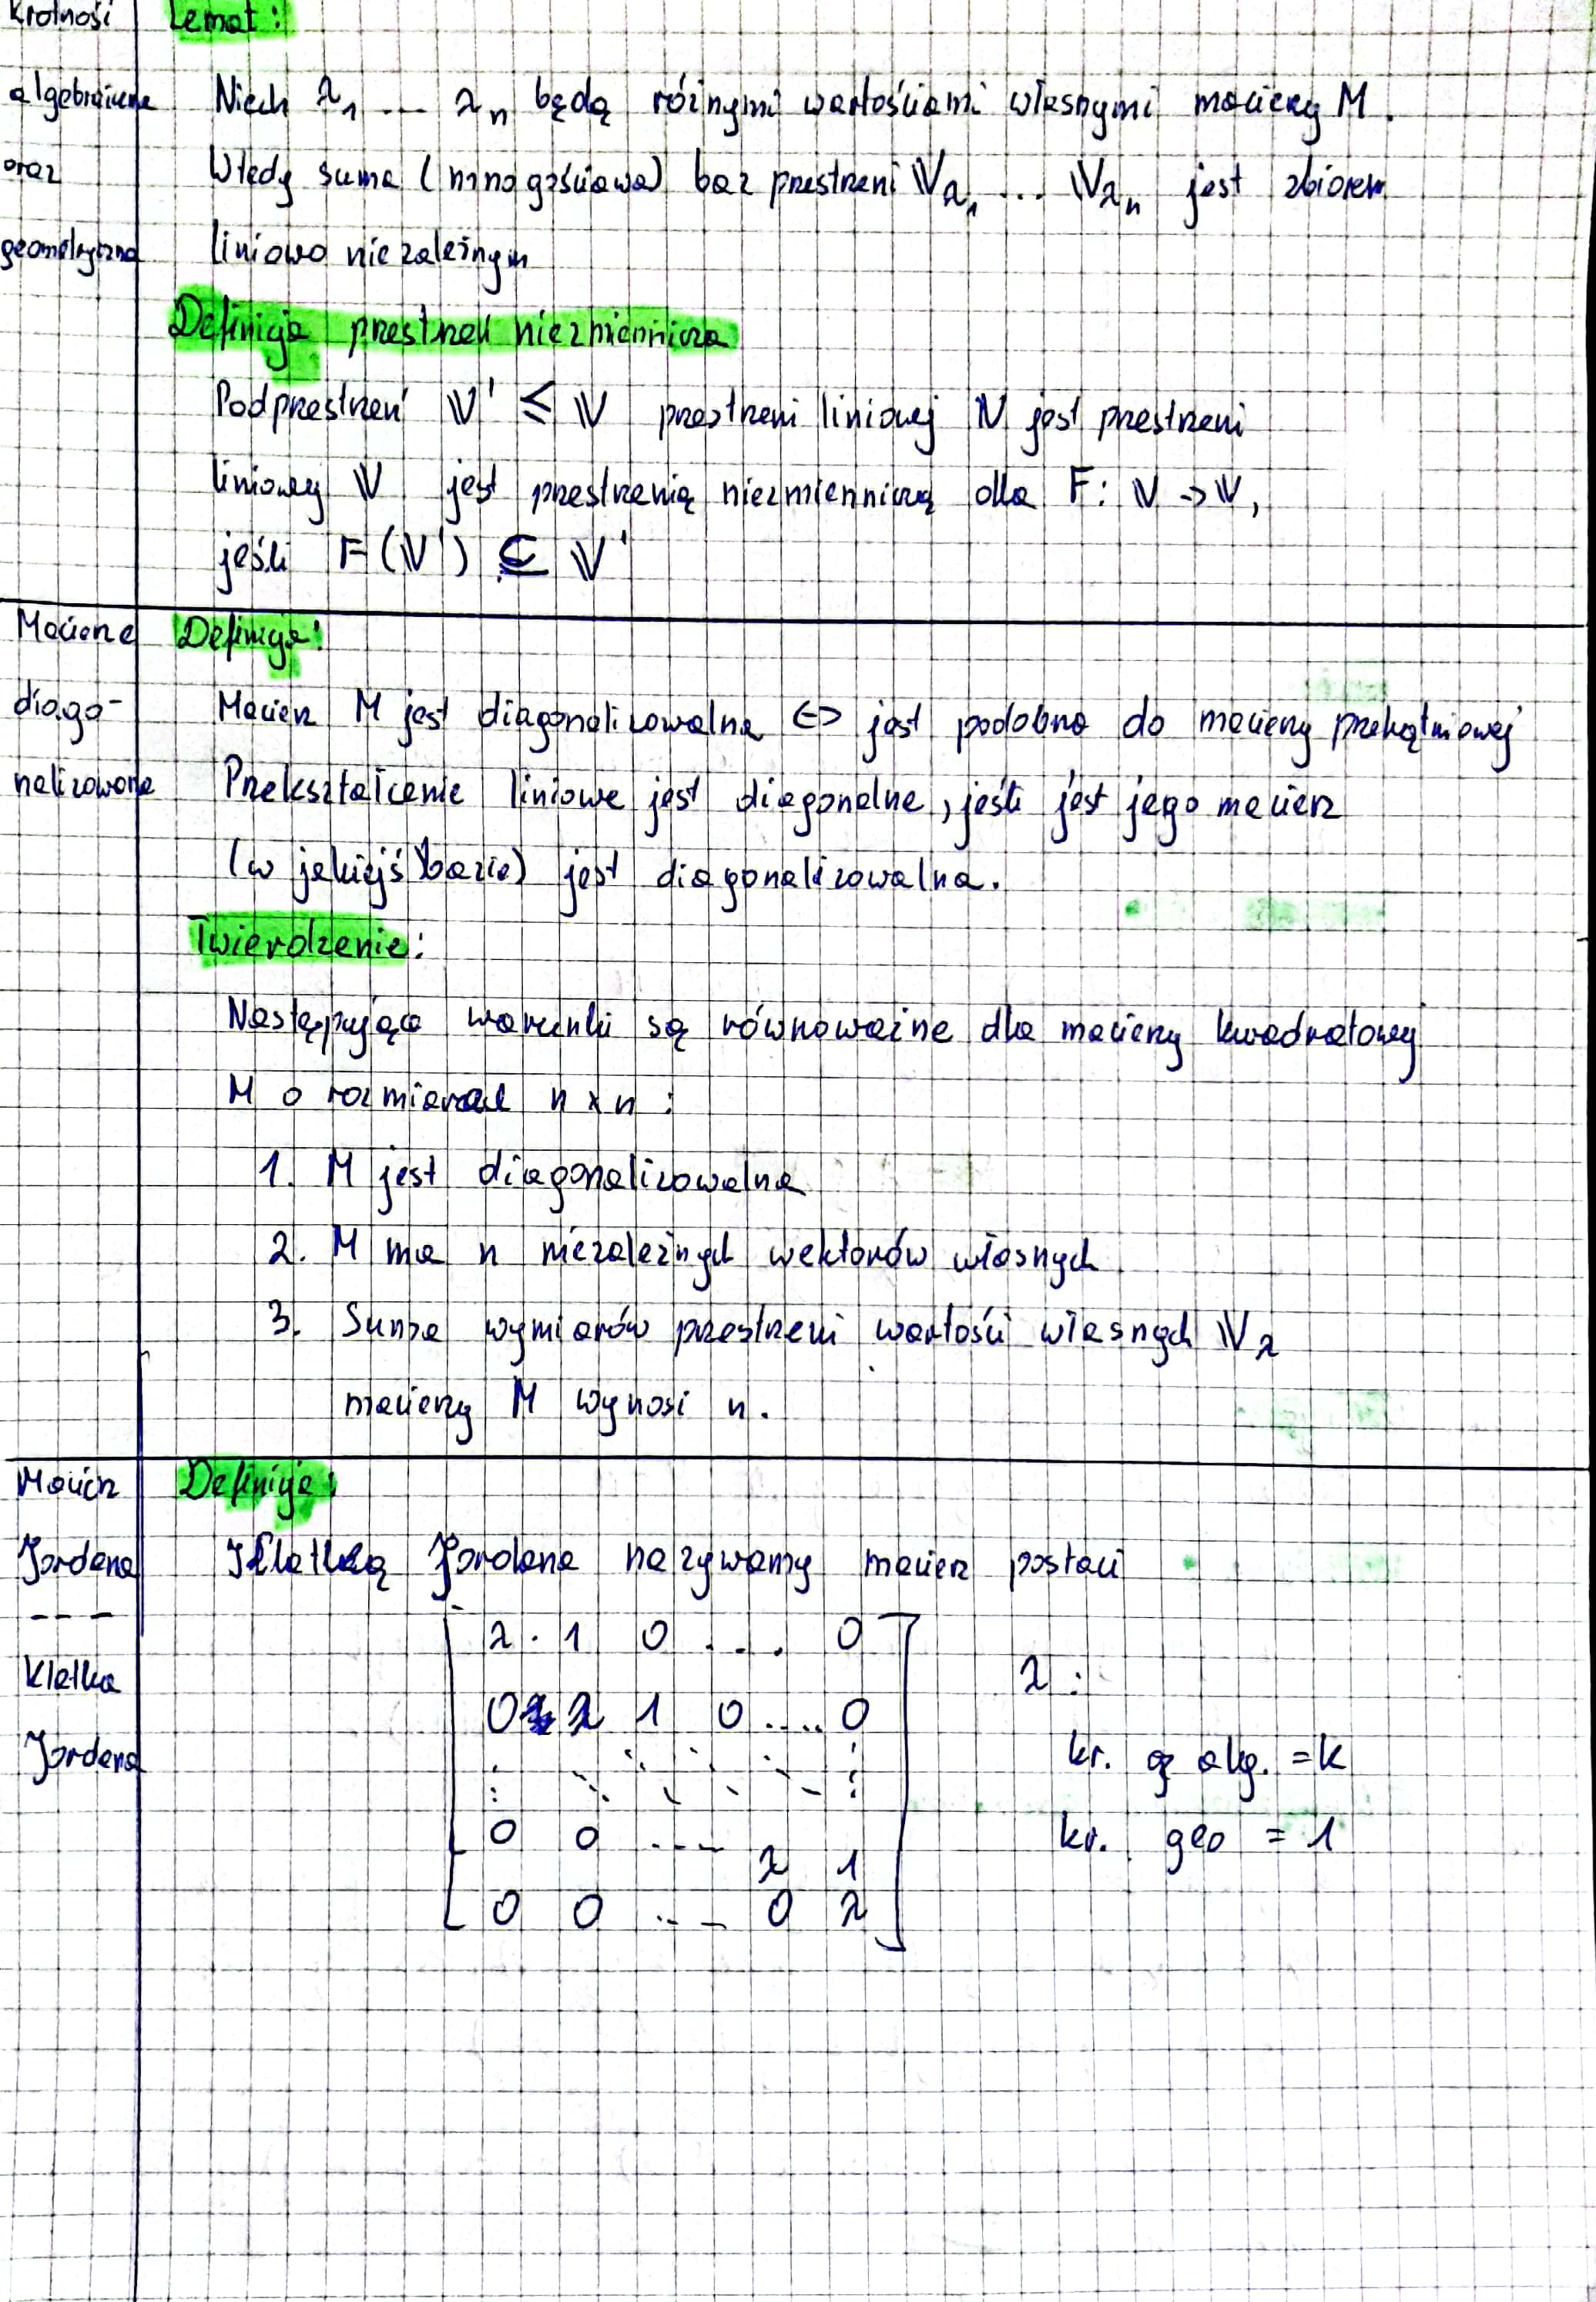 Krotności
algebraiczne
oraz
geometryczna
Lemat:
Niech λ₁ ... λₙ będą różnymi wartościami własnymi macierzy M.
Wtedy suma (mnogościowa) baz przestrzeni 𝕍λ₁ ... 𝕍λₙ jest zbiorem
liniowo niezależnym
Definicja przestrzeń niezmiennicza
Podprzestrzeń 𝕍' ≤ 𝕍 przestrzeni liniowej 𝕍 jest przestrzeni
liniowej 𝕍 jest przestrzenią niezmienniczą dla F: 𝕍 -> 𝕍,
jeśli F(𝕍') ⊆ 𝕍'
Macierze
diago-
nalizowane
Definicja:
Macierz M jest diagonalizowalna <=> jest podobna do macierzy przekątniowej
Przekształcenie liniowe jest diagonalne, jeśli jest jego macierz
(w jakiejś bazie) jest diagonalizowalna.
Twierdzenie:
Następujące warunki są równoważne dla macierzy kwadratowej
M o rozmiarze n x n:
1. M jest diagonalizowalna
2. M ma n niezależnych wektorów własnych
3. Suma wymiarów przestrzeni wartości własnych 𝕍λ
macierzy M wynosi n.
Macierz
Jordana
---
Klatka
Jordana
Definicja:
Klatką Jordana nazywamy macierz postaci
λ . 1 0 . . . 0
0 λ 1 0 .... 0
0 0 ... λ 1
0 0 ... 0 λ
λ :
kr. alg. = k
kr. geo = 1